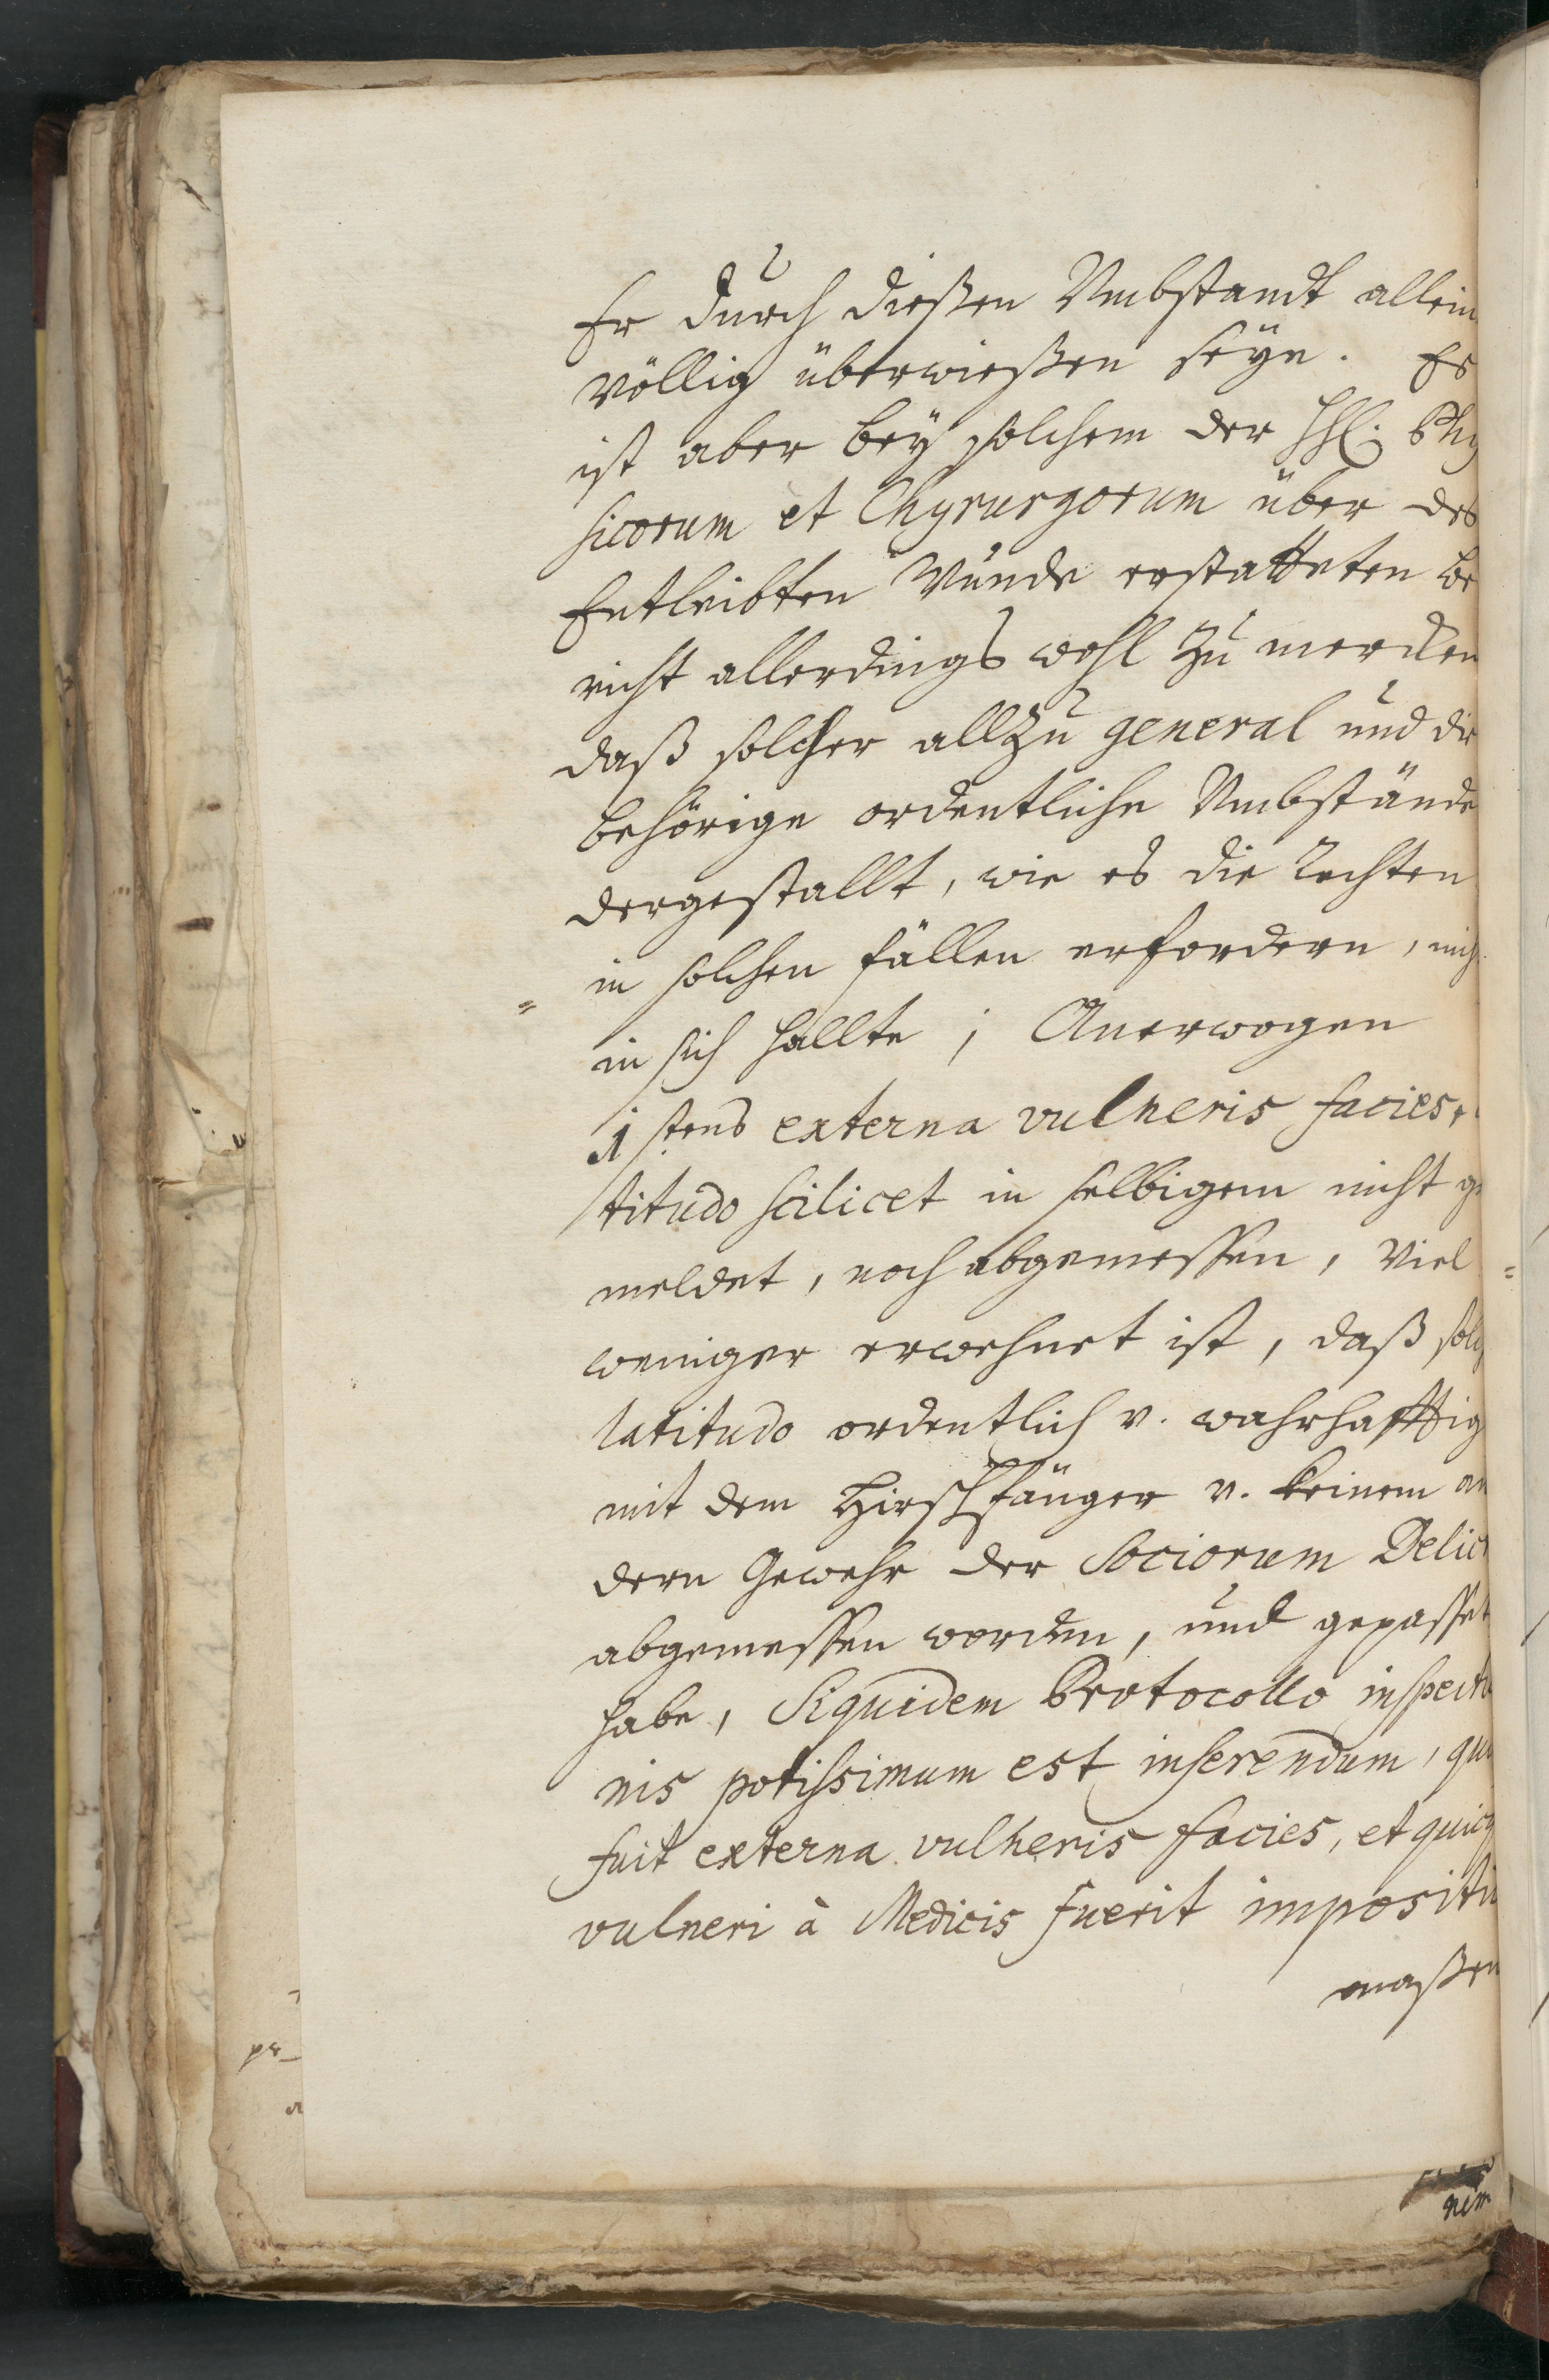 Er durch dießen Umbstandt allein
völlig überwießen seye. Es
ist aber bey solchem der HhE. Phy
sicorum et Chyrurgorum über des
Entleibten Wunde erstatteten be
richt allerdings wohl zu mercken
daß solcher allzu general und die
behörige ordentliche Umbstände
dergestallt, wie es die Rechten
in solchen fällen erfordern, nich
in sich hallte; Anerwogen
1 stens externa vulneris facies,
titudo scilicet in selbigem nicht ge
meldet, noch abgemessen, Viel
weniger erwehnet ist, daß solch
latitudo ordentlich v. wahrhafftig
mit dem Hirschfänger v. keinem an
dern Gewehr der Sociorum Delict
abgemessen worden, und gepasset
habe, Siquidem Protocollo inspectio
nis potissimum est inserendum, qu
fuit externa vulneris facies, et quicq
vulneri à Medicis fuerit impositu
maßen